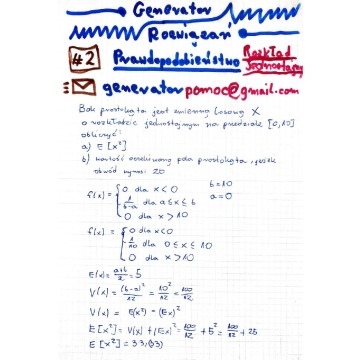 Generator
Rozwiązań
#2 Prawdopodobieństwo Rozkład
Jednostajny
generatorpomoc@gmail.com
Bok prostokąta jest zmienną losową X
o rozkładzie jednostajnym na przedziale [0,10]
obliczyć:
a) E[x²]
b) wartość oczekiwaną pola prostokąta, jeżeli
obwód wynosi 20
f(x) = { 0 dla x < 0 b = 10
1/b-a dla a ≤ x ≤ b a = 0
0 dla x > 10
f(x) = { 0 dla x < 0
1/10 dla 0 ≤ x ≤ 10
0 dla x > 10
E(x) = a+b/2 = 5
V(x) = (b-a)²/12 = 10²/12 = 100/12
V(x) = E(x²) - (Ex)²
E[x²] = V(x) + (Ex)² = 100/12 + 5² = 100/12 + 25
E[x²] = 33,(3)